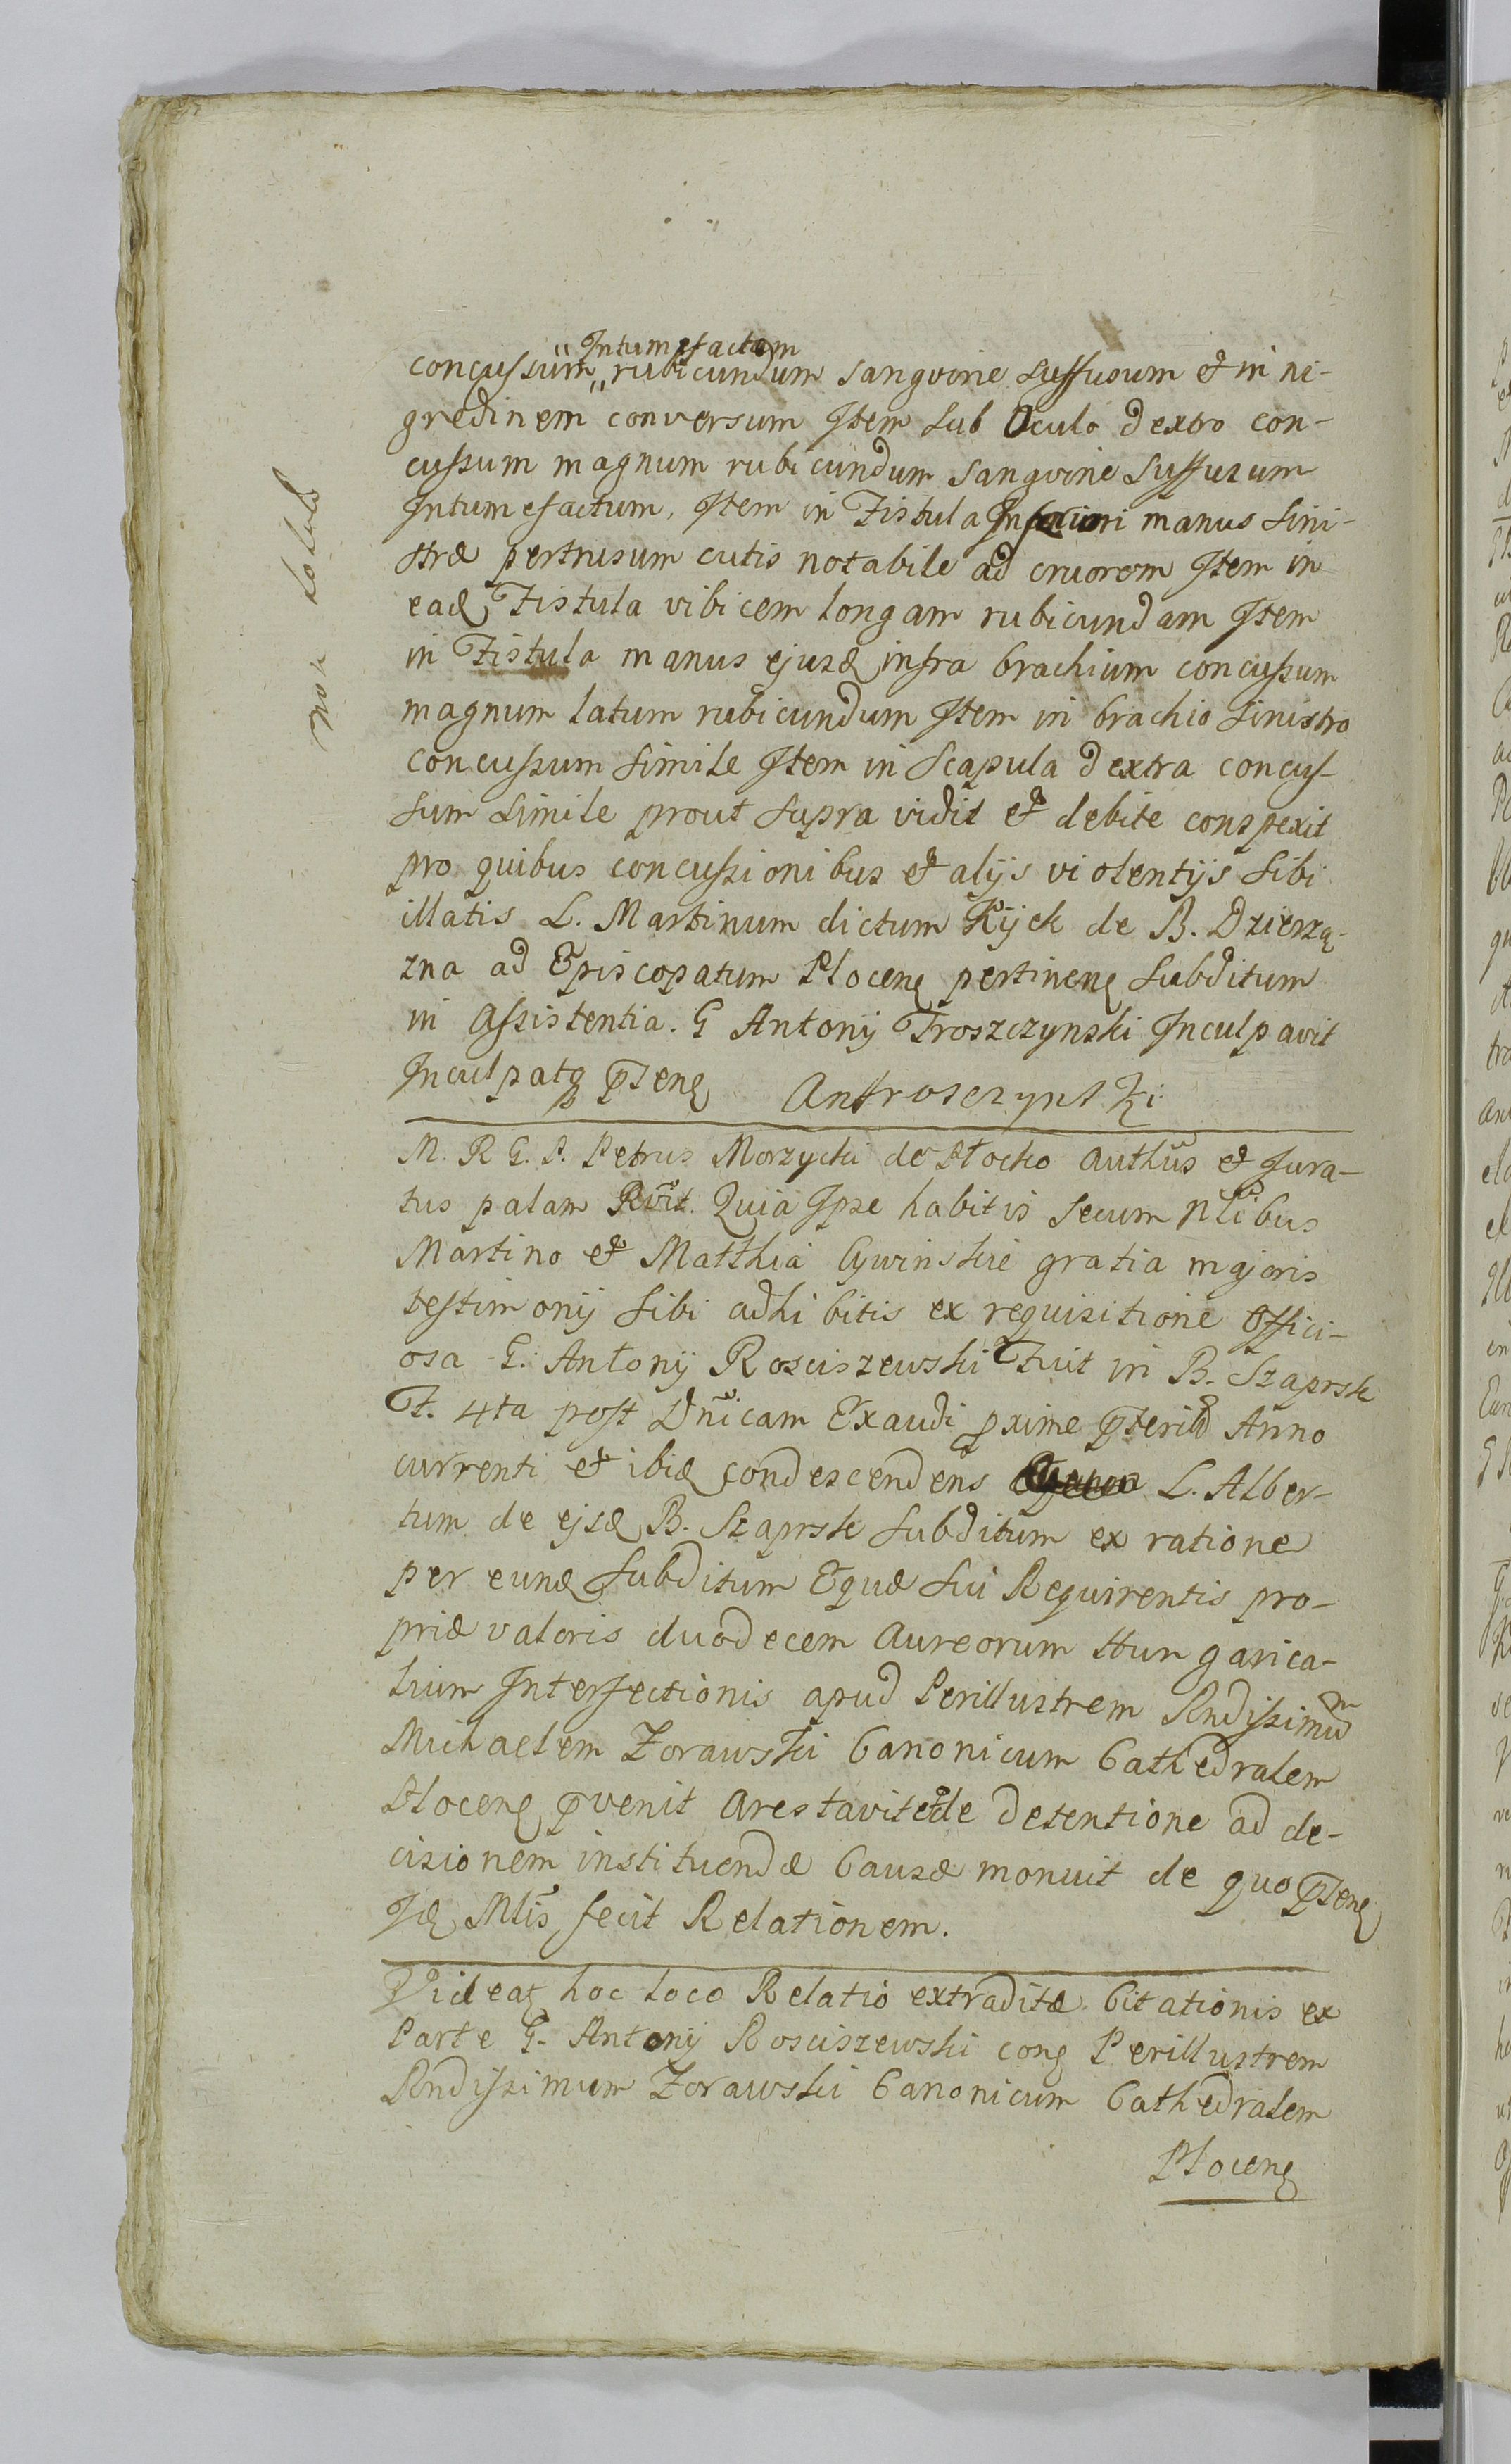 Intumefactum
concussum rubicundum sangvine suffusum et in ni-
gredinem conversum Item sub Oculo dextro con-
cussum magnum rubicundum sangvine suffusum
Intumefactum, Item in Fistula Inferiori manus sini-
stræ pertrusum cutis notabile ad cruorem Item in
ead Fistula vibicem longam rubicundam Item
in Fistula manus ejusd infra brachium concussum
magnum latum rubicundum Item in brachio sinistro
concussum simile Item in Scapula dextra concus-
sum simile prout supra vidit et debite conspexit
pro quibus concussionibus et alijs violentijs sibi
illatis L. Martinum dictum Kijck de B. Dzierzą-
zna ad Episcopatum Plocen pertinen subditum
in assistentia. G Antonij Troszczynski Inculpavit
Inculpatq pten Antroszczynski
M. R G. P. Petrus Morzycki de Płocko authus et Jura-
tus palam Rvit. Quia Ipse habitis secum nlibus
Martino et Matthia Cywinskie gratia majoris
testimonij sibi adhibitis ex requisitione offici-
osa G. Antonij Rosciszewski Fuit in B. Szaprsk
F. 4ta post Dnicam Exaudi pxime pterita Anno
currenti et ibid condescendens L. Alber-
tum de ejsd B. Szaprsk subditum ex ratione
per eund subditum Equæ sui Requirentis pro-
priæ valoris duodecem Aureorum Hungarica-
lium Interfectionis apud Perillustrem Rndissimum
Michaelem Zorawski Canonicum Cathedralem
Plocen pvenit arestavit de detentione ad de-
cisionem instituendæ Causæ monuit de quo pten
Id Mlis fecit Relationem.
Videatq hoc loco Relatio extraditæ Citationis ex
Parte G. Antonij Rosciszewski con Perillustrem
Rndissimum Zorawski Canonicum Cathedralem
Plocen